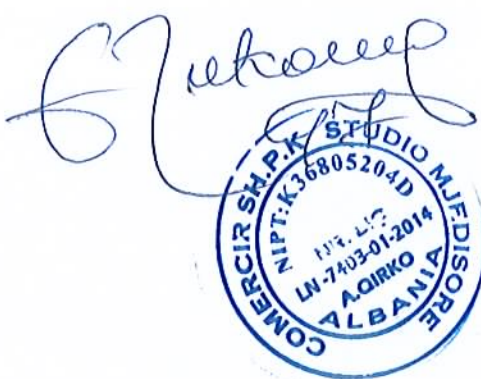 COMERCIR SH.P.K STUDIO MJEDISORE
NIPT:K36805204D
NR. LIC
LN-7403-01-2014
A.QIRKO
ALBANIA